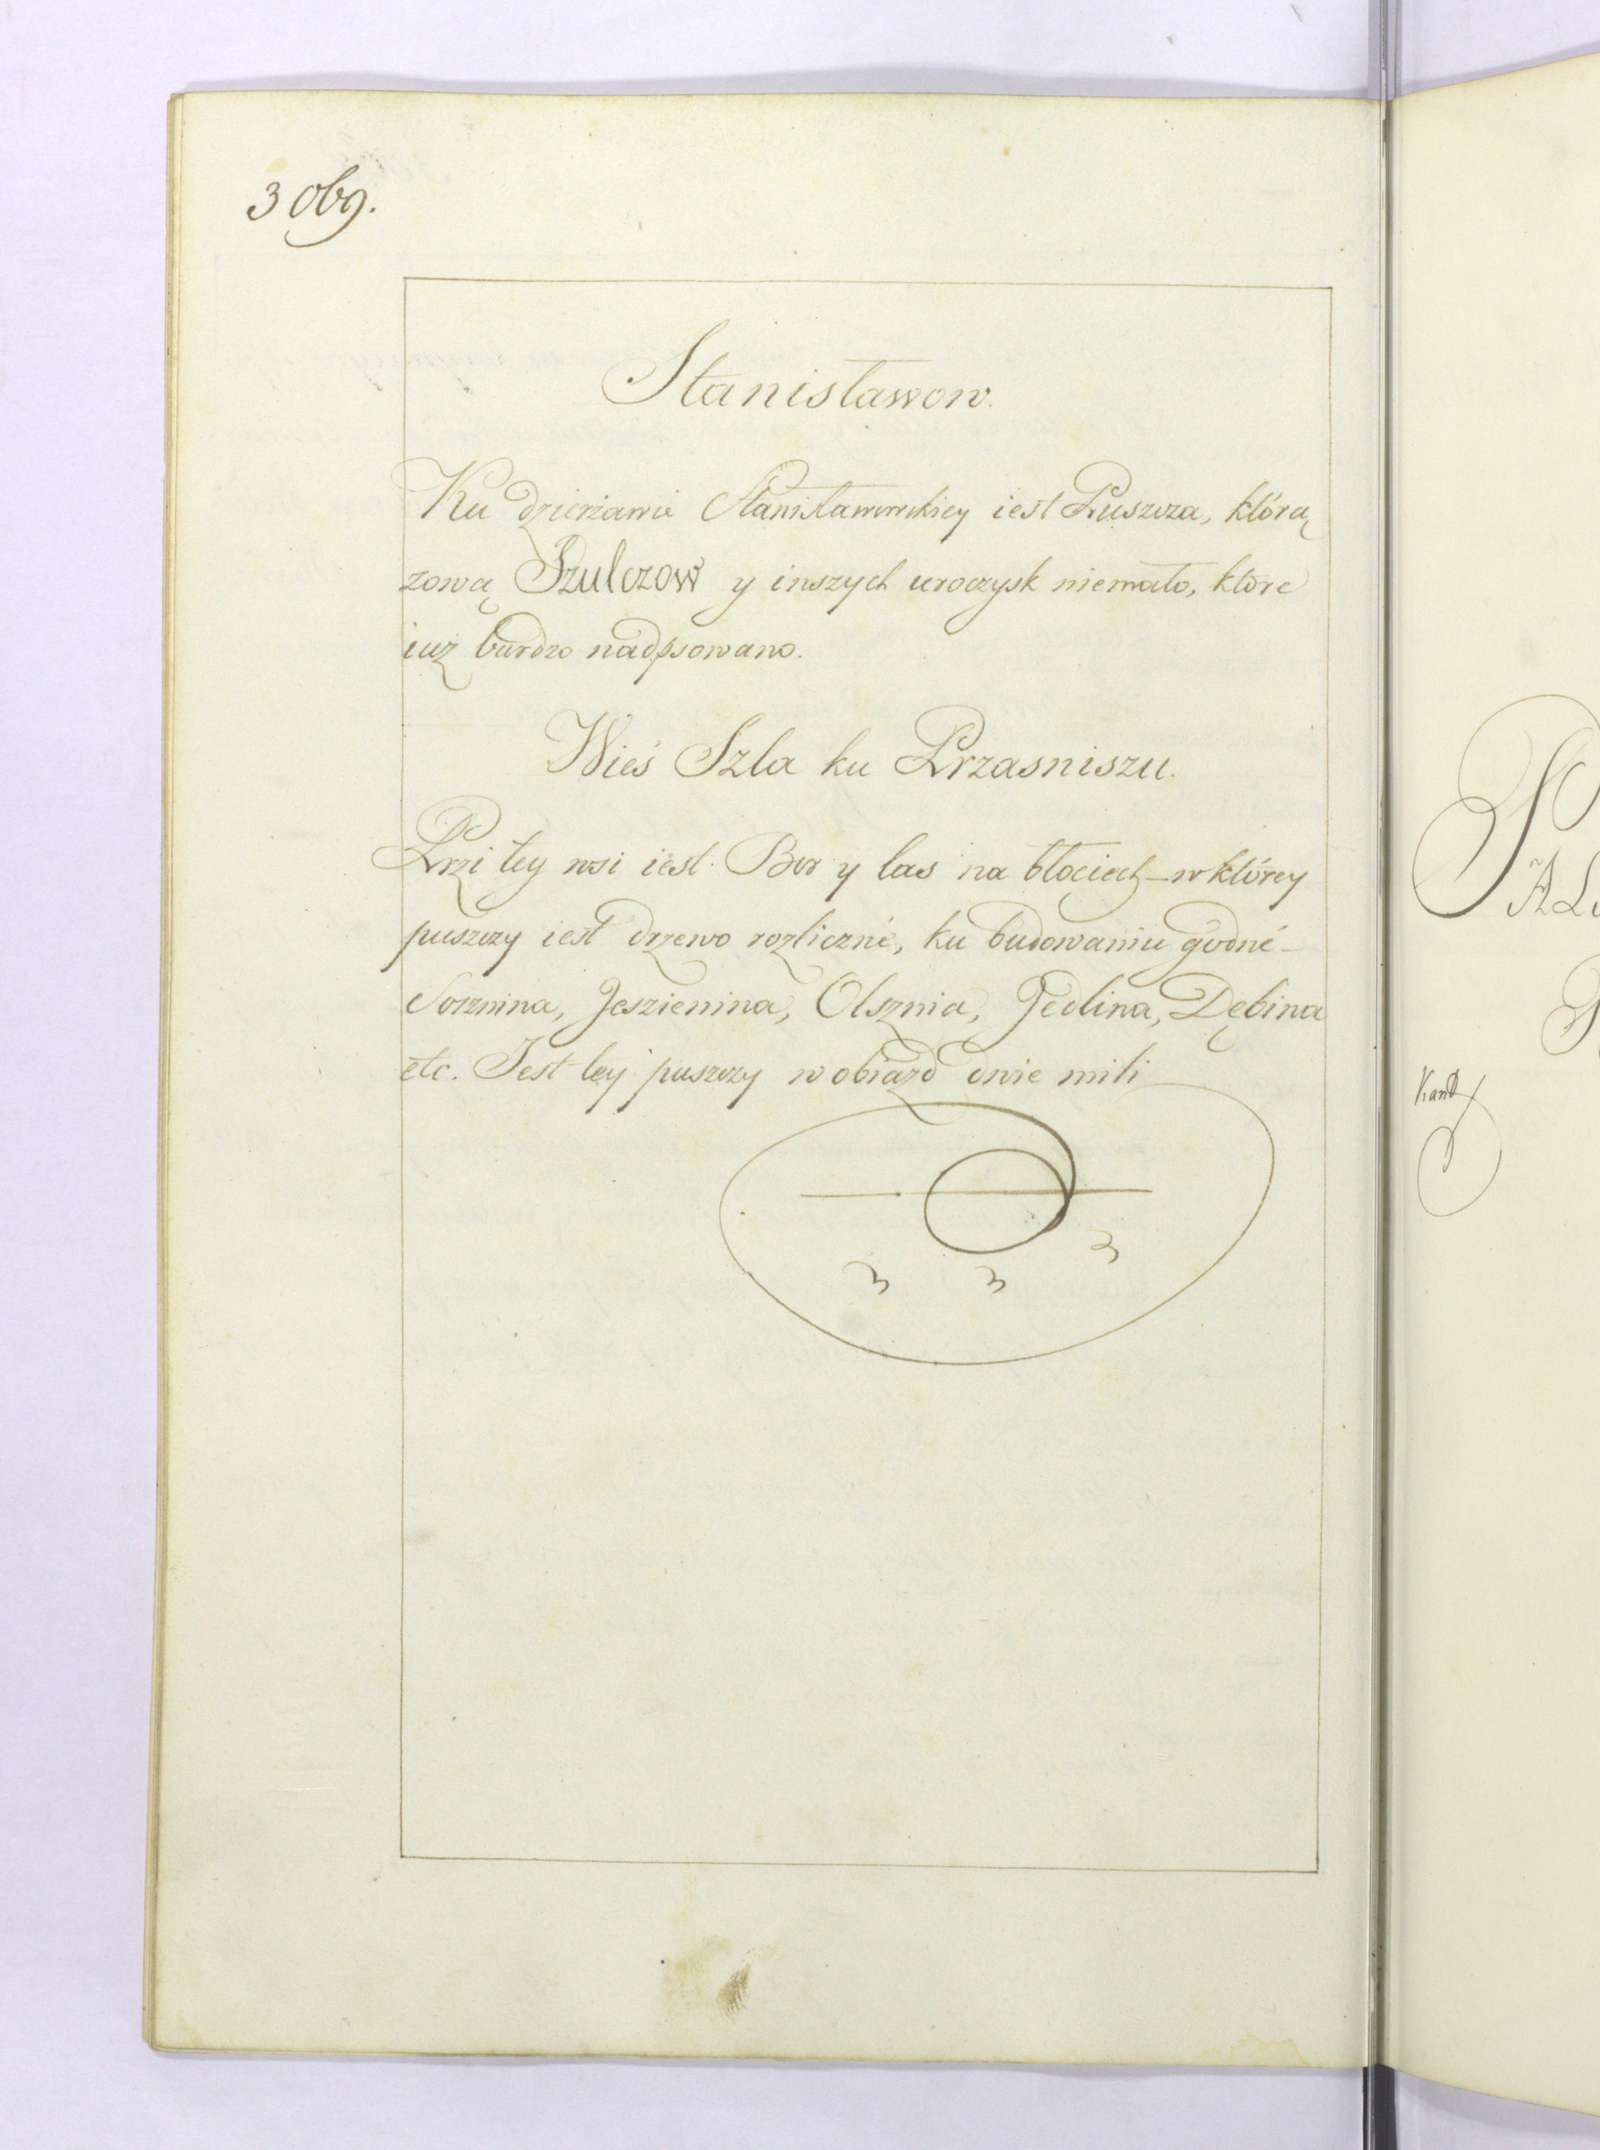 3 069.
Stanisławow.
Ku dzierżawie Stanisławowskiey iest Puszcza, którą
zową Szulczow y inszych uroczysk niemało, które
iuż bardzo nadpsowano.
Wieś Szla ku Przasniszu.
Przi tey wsi iest Bor y las na błociech – w którey
puszczy iest drzewo rozliczné, ku budowaniu godné –
Sosznina, Jeszienina, Olsznia, Jedlina, Dębina
etc. Jest tey puszczy w obiazd dwie mili
3 3 3
Kand